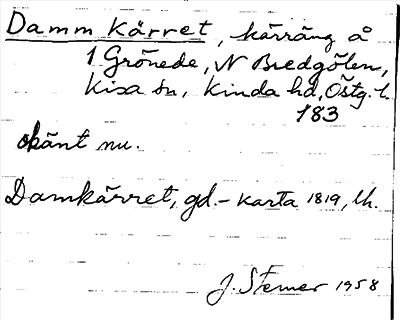 Damm Kärret, kärräng å
1 Grönede, N Bredgölen,
Kisa sn, Kinda hd, Östg. l.
183
okänt nu.
Damkärret, gd.- karta 1819, lh.
J. Sterner 1958